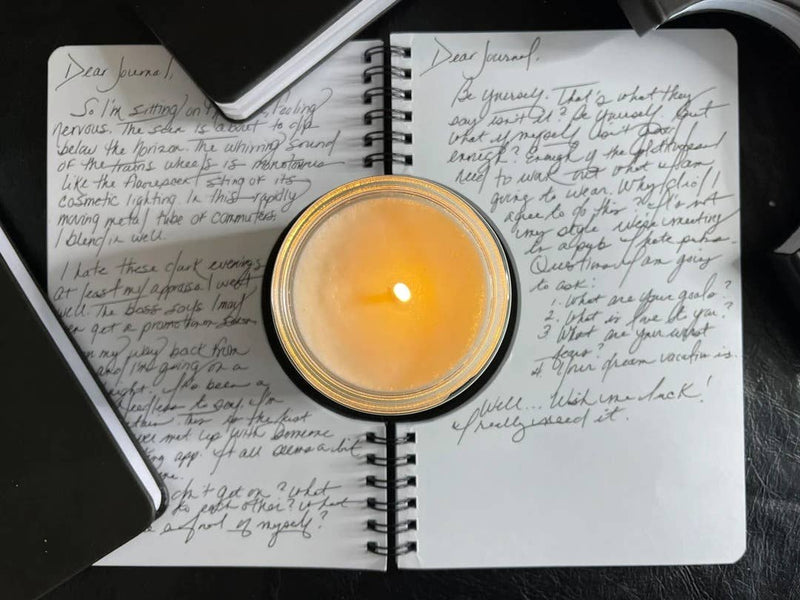 Dear Journal,
So I'm sitting on feeling
nervous. The is about to dip
below the horizon. The whirring sound
of the trains wheels is monotonous
like the sting of its
cosmetic lighting in this rapidly
moving metal tube of commuters.
I blend in well.
I hate these dark evenings
at least my appraisal went
well. The boss says I may
get a promotion soon
my way back from
and I'm going on a
been a
Needless to say I'm
for the first
met up with someone
app. It all seems a bit
don't get on? What
to each other? What
a fool of myself?
Dear Journal,
Be yourself. That's what they
say isn't it? Be yourself but
what if myself isn't good
enough? Enough of the
need to work out what I am
going to wear. Why did I
agree to go this It's not
my style. We're meeting
in a pub. I hate pubs.
Questions I am going
to ask:
1. What are your goals?
2. What is love to you?
3. What are your worst
fears?
4. Your dream vacation is.
Well... Wish me luck!
I really need it.